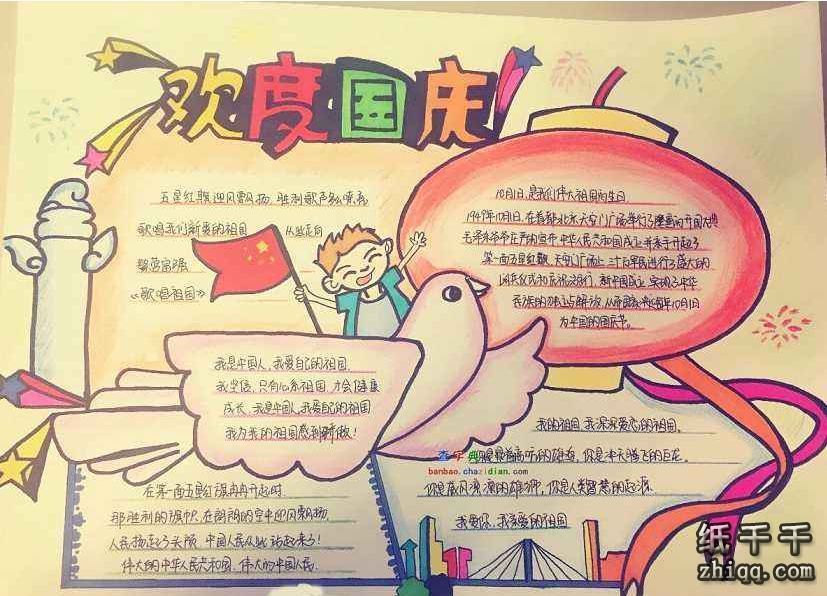 欢度国庆
五星红旗迎风飘扬 胜利歌声多么响亮
歌唱我们新爱的祖国 从此走向
繁荣富强
《歌唱祖国》
10月1日,是我们伟大祖国的生日
1949年10月1日,在首都北京天安门广场举行了隆重的开国大典
毛泽东爷爷庄严的宣布 中华人民共和国成立 并亲手升起了
第一面五星红旗 天安门广场上 三十万军民进行了盛大的
阅兵仪式和庆祝游行 新中国成立 实现了中华
民族的独立与解放 从而
每年10月1日
为中国的国庆节。
我是中国人,我爱自己的祖国
我坚信,只有心系祖国,才会健康
成长,我是中国人,我爱自己的祖国
我为我的祖国感到骄傲!
我的祖国 我深深爱恋的祖国,
你是昂首高吭的雄鸡,你是冲天腾飞的巨龙,
你是威风凛凛的雄狮,你是人类智慧的起源
我爱你,我亲爱的祖国
在第一面五星红旗冉冉升起时
那胜利的旗帜,在朗朗的空中迎风飘扬
人民扬起了头颅 中国人民从此站起来了!
伟大的中华人民共和国,伟大的中国人民.
查字典
banbao.chazidian.com
纸千千
zhiqq.com